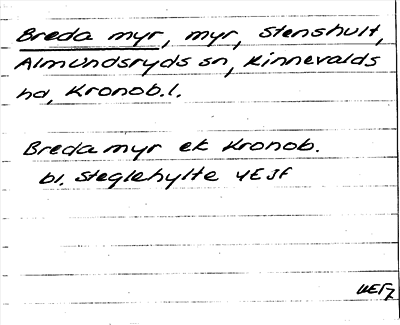 Breda myr, myr, Stenshult,
Almundsryds sn, Kinnevalds
hd, Kronob.l.
Breda myr ek Kronob.
bl. Steglehylte 4E5f